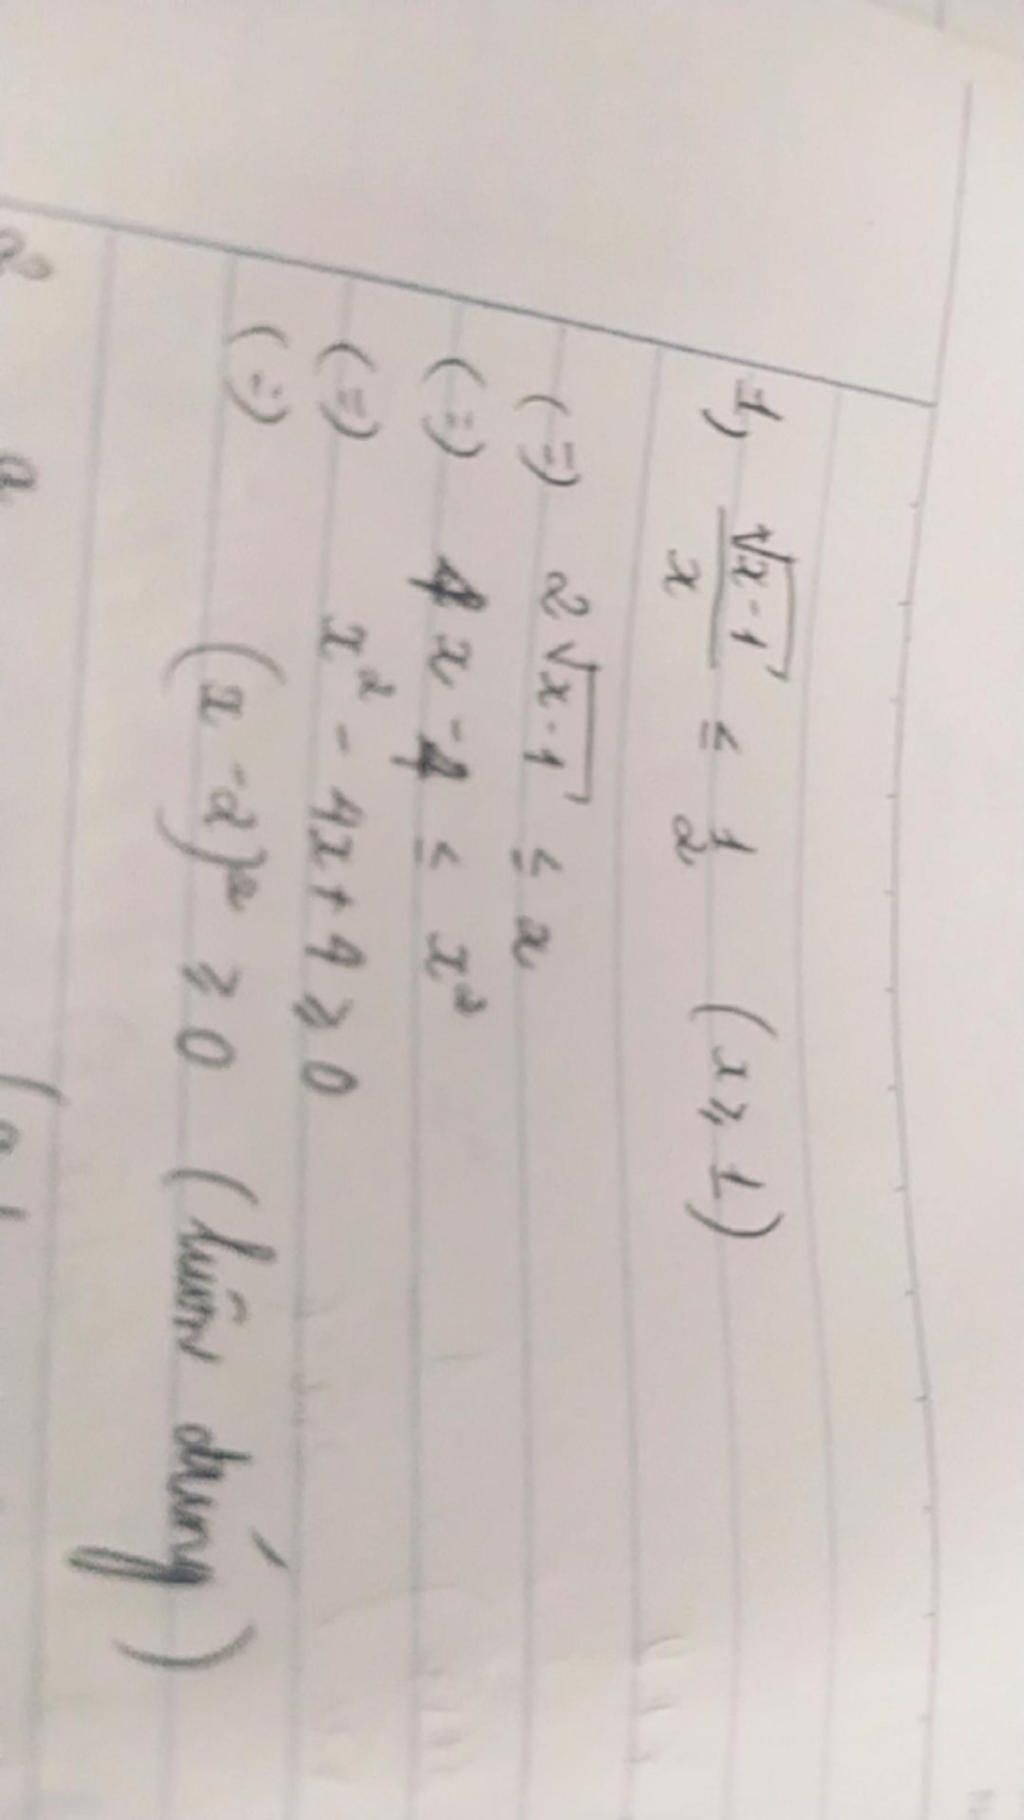 1) √x-1 / x ≤ 1/2 (x ≥ 1)
(=) 2√x-1 ≤ x
(=) 4x - 4 ≤ x²
(=) x² - 4x + 4 ≥ 0
(=) (x - 2)² ≥ 0 (luôn đúng)